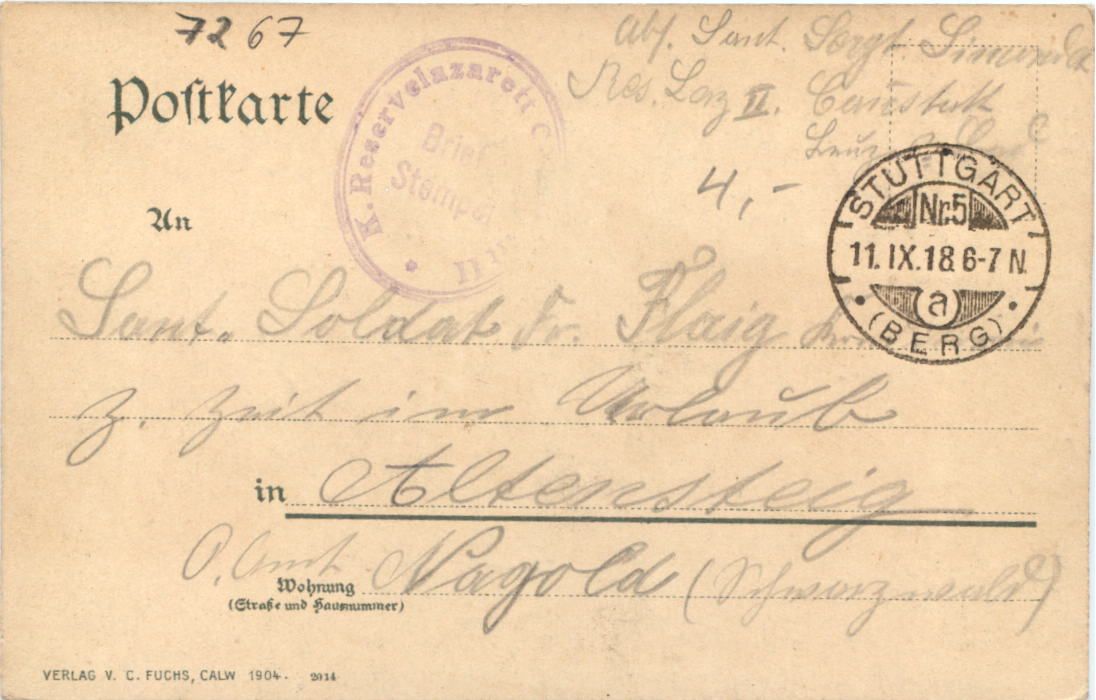 7267
Abs. Sant. Sergt.
Res. Laz II.
Postkarte
K. Reservelazarett C.
Brief
Stempel
II
4,-
STUTTGART
Nr.5
11.IX.18 6-7 N.
a
(BERG)
An
Sant. Soldat Fr. Flaig
z. Zeit im Urlaub
in Altensteig
O. Amt Nagold (Schwarzwald)
Wohnung
(Straße und Hausnummer)
VERLAG V. C. FUCHS, CALW 1904. 2014